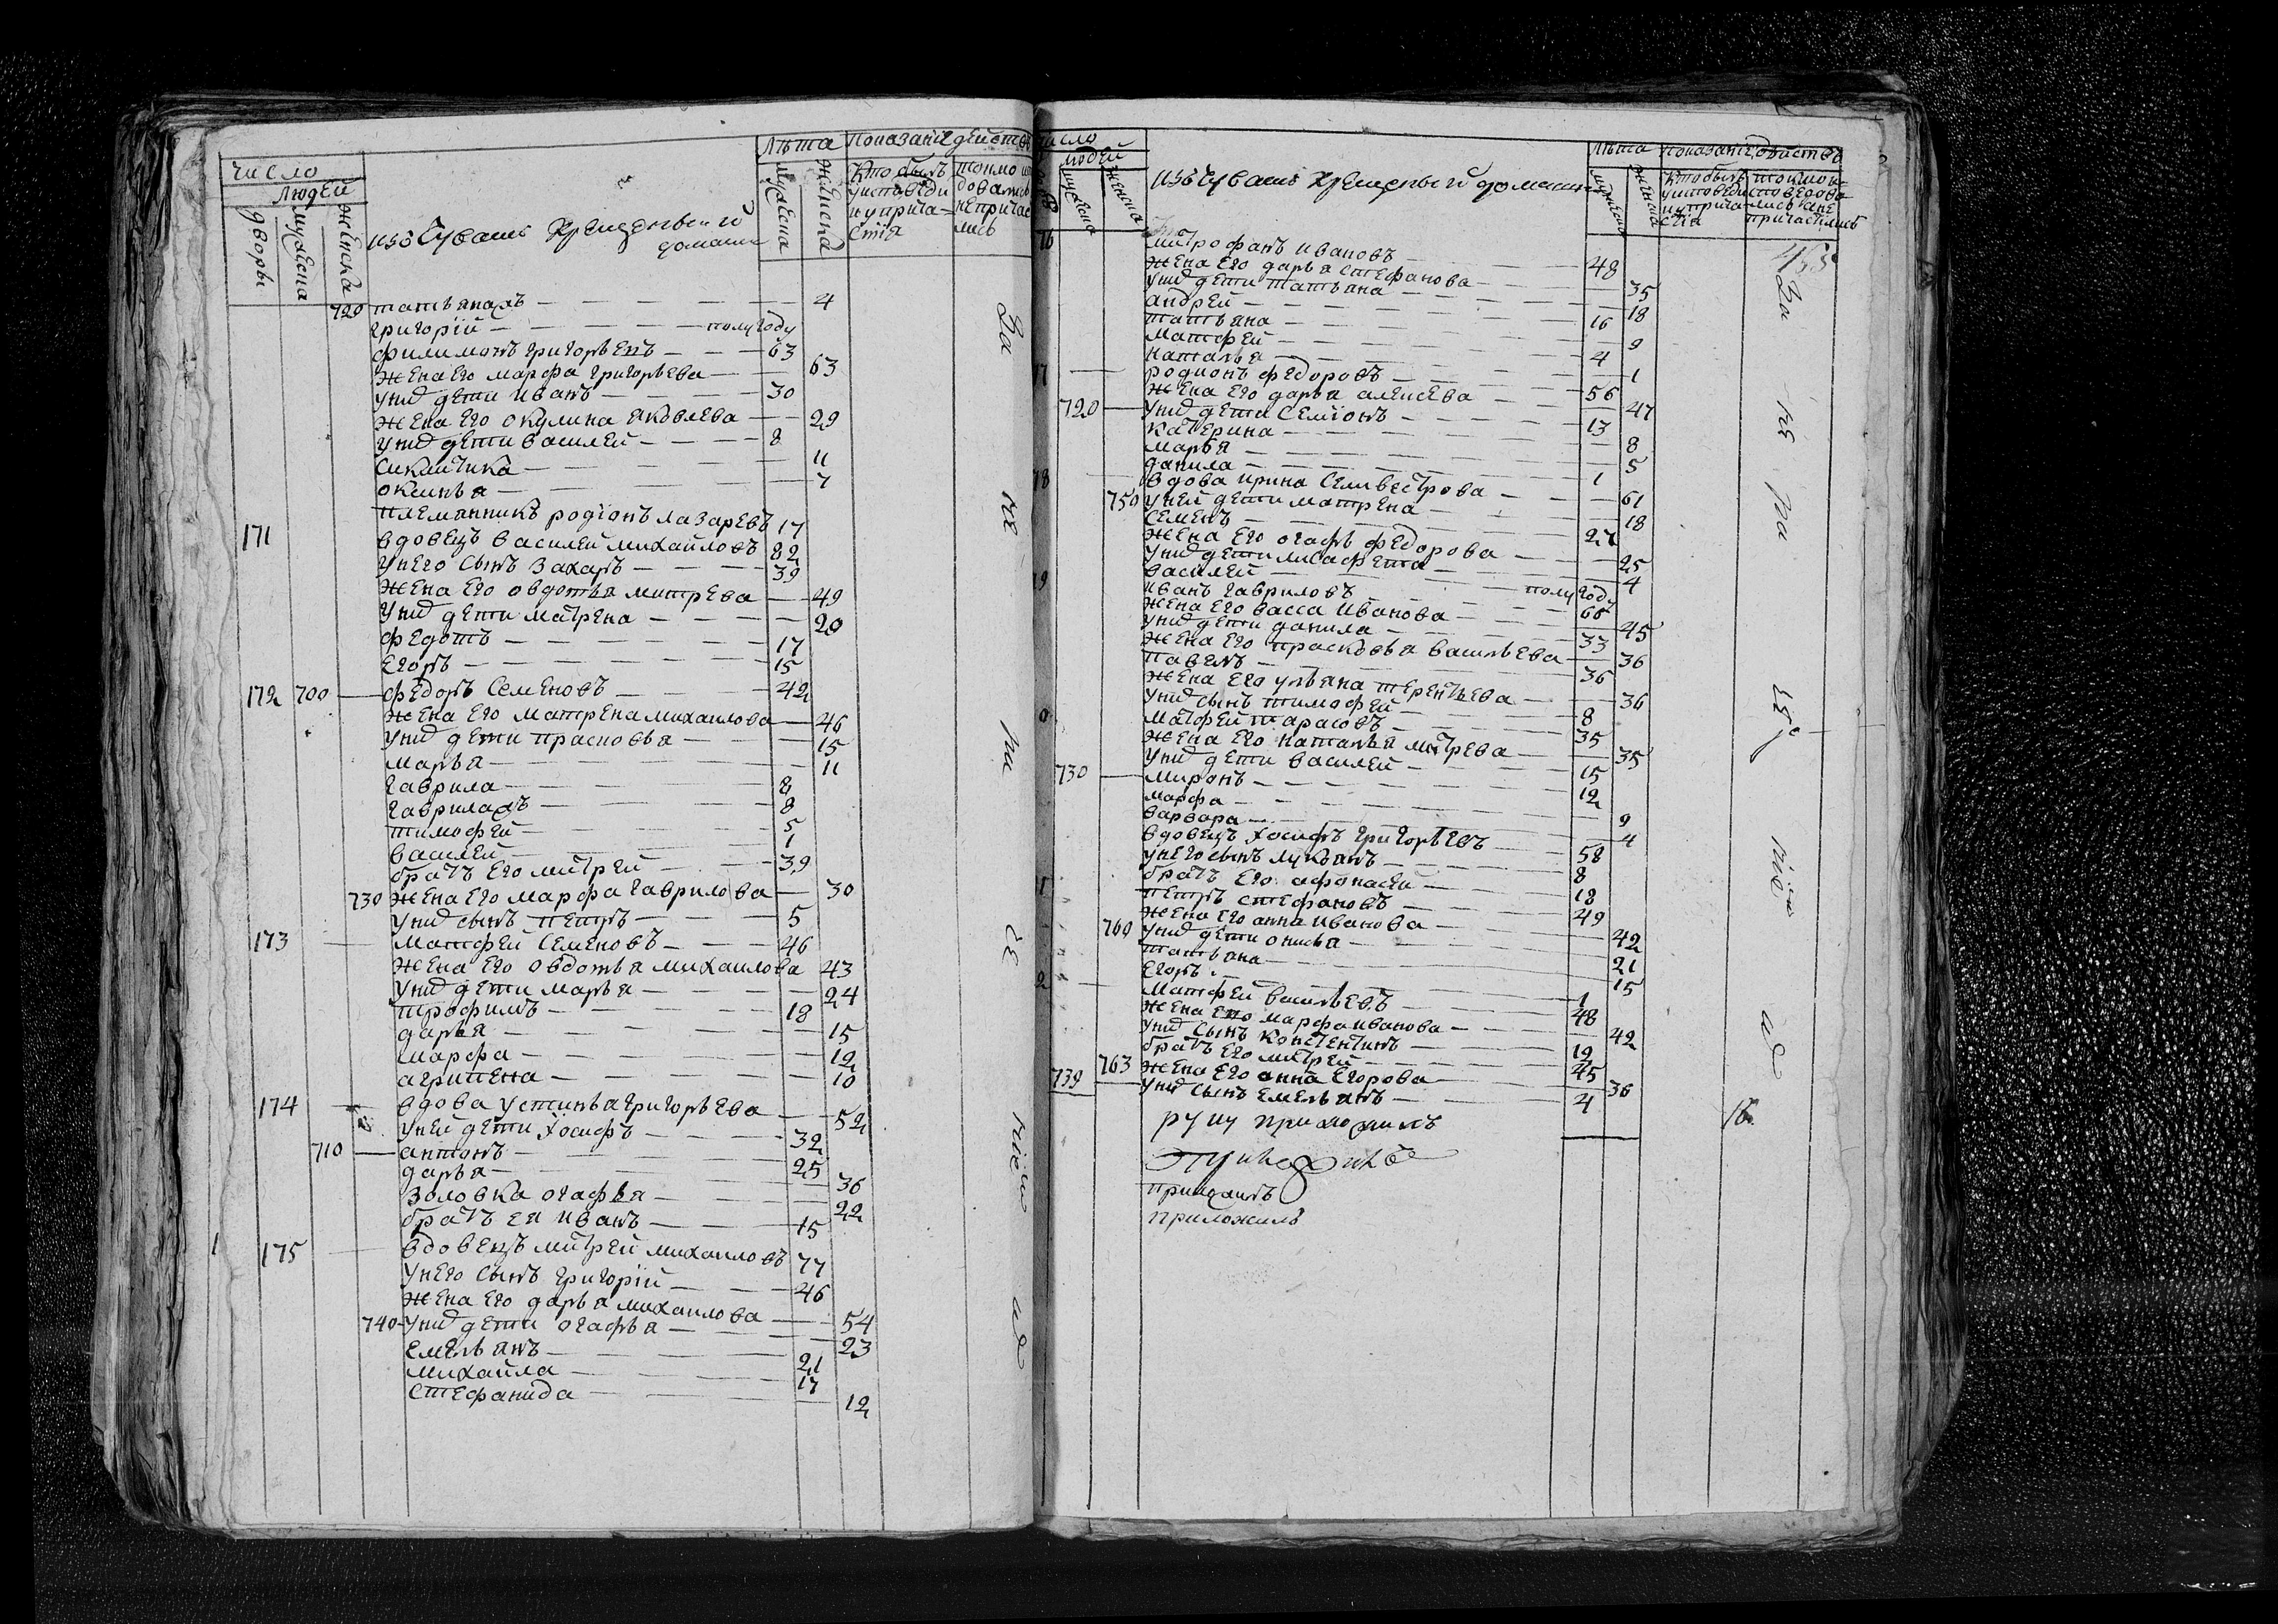 число
людей
дворы мужеска женска
изъ чувашъ крещеныхъ и домашнихъ
лѣта
мужеска женска
показаніе действъ
кто былъ у исповеди и у прича- стія
токмо испо довались а не причас лись
720 татьяна жъ 4
григорій полугоду
филимонъ григорьевъ 63
жена его марфа григорьева 63
у нихъ дети иванъ 30
жена его окулина яковлева 29
у нихъ дети василей 8
11
оксинья 7
племянникъ родіонъ лазаревъ 17
171 вдовецъ василей михайловъ 82
у него сынъ захаръ 39
жена его овдотья митрева 49
у нихъ дети матрена 20
федотъ 17
егоръ 15
172 700 федоръ семеновъ 42
жена его матрена михаилова 46
у нихъ дети прасковья 15
марья 11
гаврила 8
гаврила жъ 8
тимофей 5
василей 1
братъ его митрей 39
730 жена его марфа гаврилова 30
у нихъ сынъ петръ 5
173 матфей семеновъ 46
жена его овдотья михаилова 43
у нихъ дети марья 24
трофимъ 18
дарья 15
марфа 12
агрипена 10
174 вдова устинья григорьева 52
у ней дети хосифъ 32
710 антонъ 25
дарья 36
золовка огафья 22
братъ ея иванъ 15
1 175 вдовецъ митрей михаиловъ 77
у него сынъ григорій 46
жена его дарья михаилова 54
740 у нихъ дети огафья 23
емельянъ 21
михайла 17
стефанида 12
число
людей
мужеска женска
изъ чувашъ крещеныхъ и домашнихъ
лѣта
мужеска женска
показаніе действъ
кто былъ у исповеди и у прича- стія
токмо и- споведова- лись а не причастились
76 митрофанъ ивановъ 48
жена его дарья стефанова 35
у нихъ дети татьяна 18
андрей 16
татьяна 9
матфей 4
наталья 1
77 родионъ федоровъ 56
жена его дарья алексева 47
720 у нихъ дети семіонъ 13
катерина 8
марья 5
данила 1
78 вдова ирина селивестрова 61
750 у ней дети матрена 18
семенъ 27
жена его огафья федорова 25
у нихъ дети лисафета 4
василей полугоду
79 иванъ гавриловъ 66
жена его васса иванова 45
у нихъ дети данила 33
жена его прасковья васильева 36
павелъ 36
жена его ульяна терентьева 36
у нихъ сынъ тимофей 8
0 матфей тарасовъ 35
жена его наталья митрева 35
у нихъ дети василей 15
730 миронъ 12
марфа 9
варвара 4
вдовецъ хосифъ григорьевъ 58
у него сынъ лукьянъ 8
братъ его афонасей 18
1 петръ стефановъ 49
жена его анна иванова 42
760 у нихъ дети онисья 21
татьяна 15
егоръ 1
2 матфей васильевъ 48
жена его марфа иванова 42
у нихъ сынъ констентинъ 12
братъ его митрей 45
763 жена его анна егорова 36
739 у нихъ сынъ емельянъ 4
руку приложилъ
приложилъ